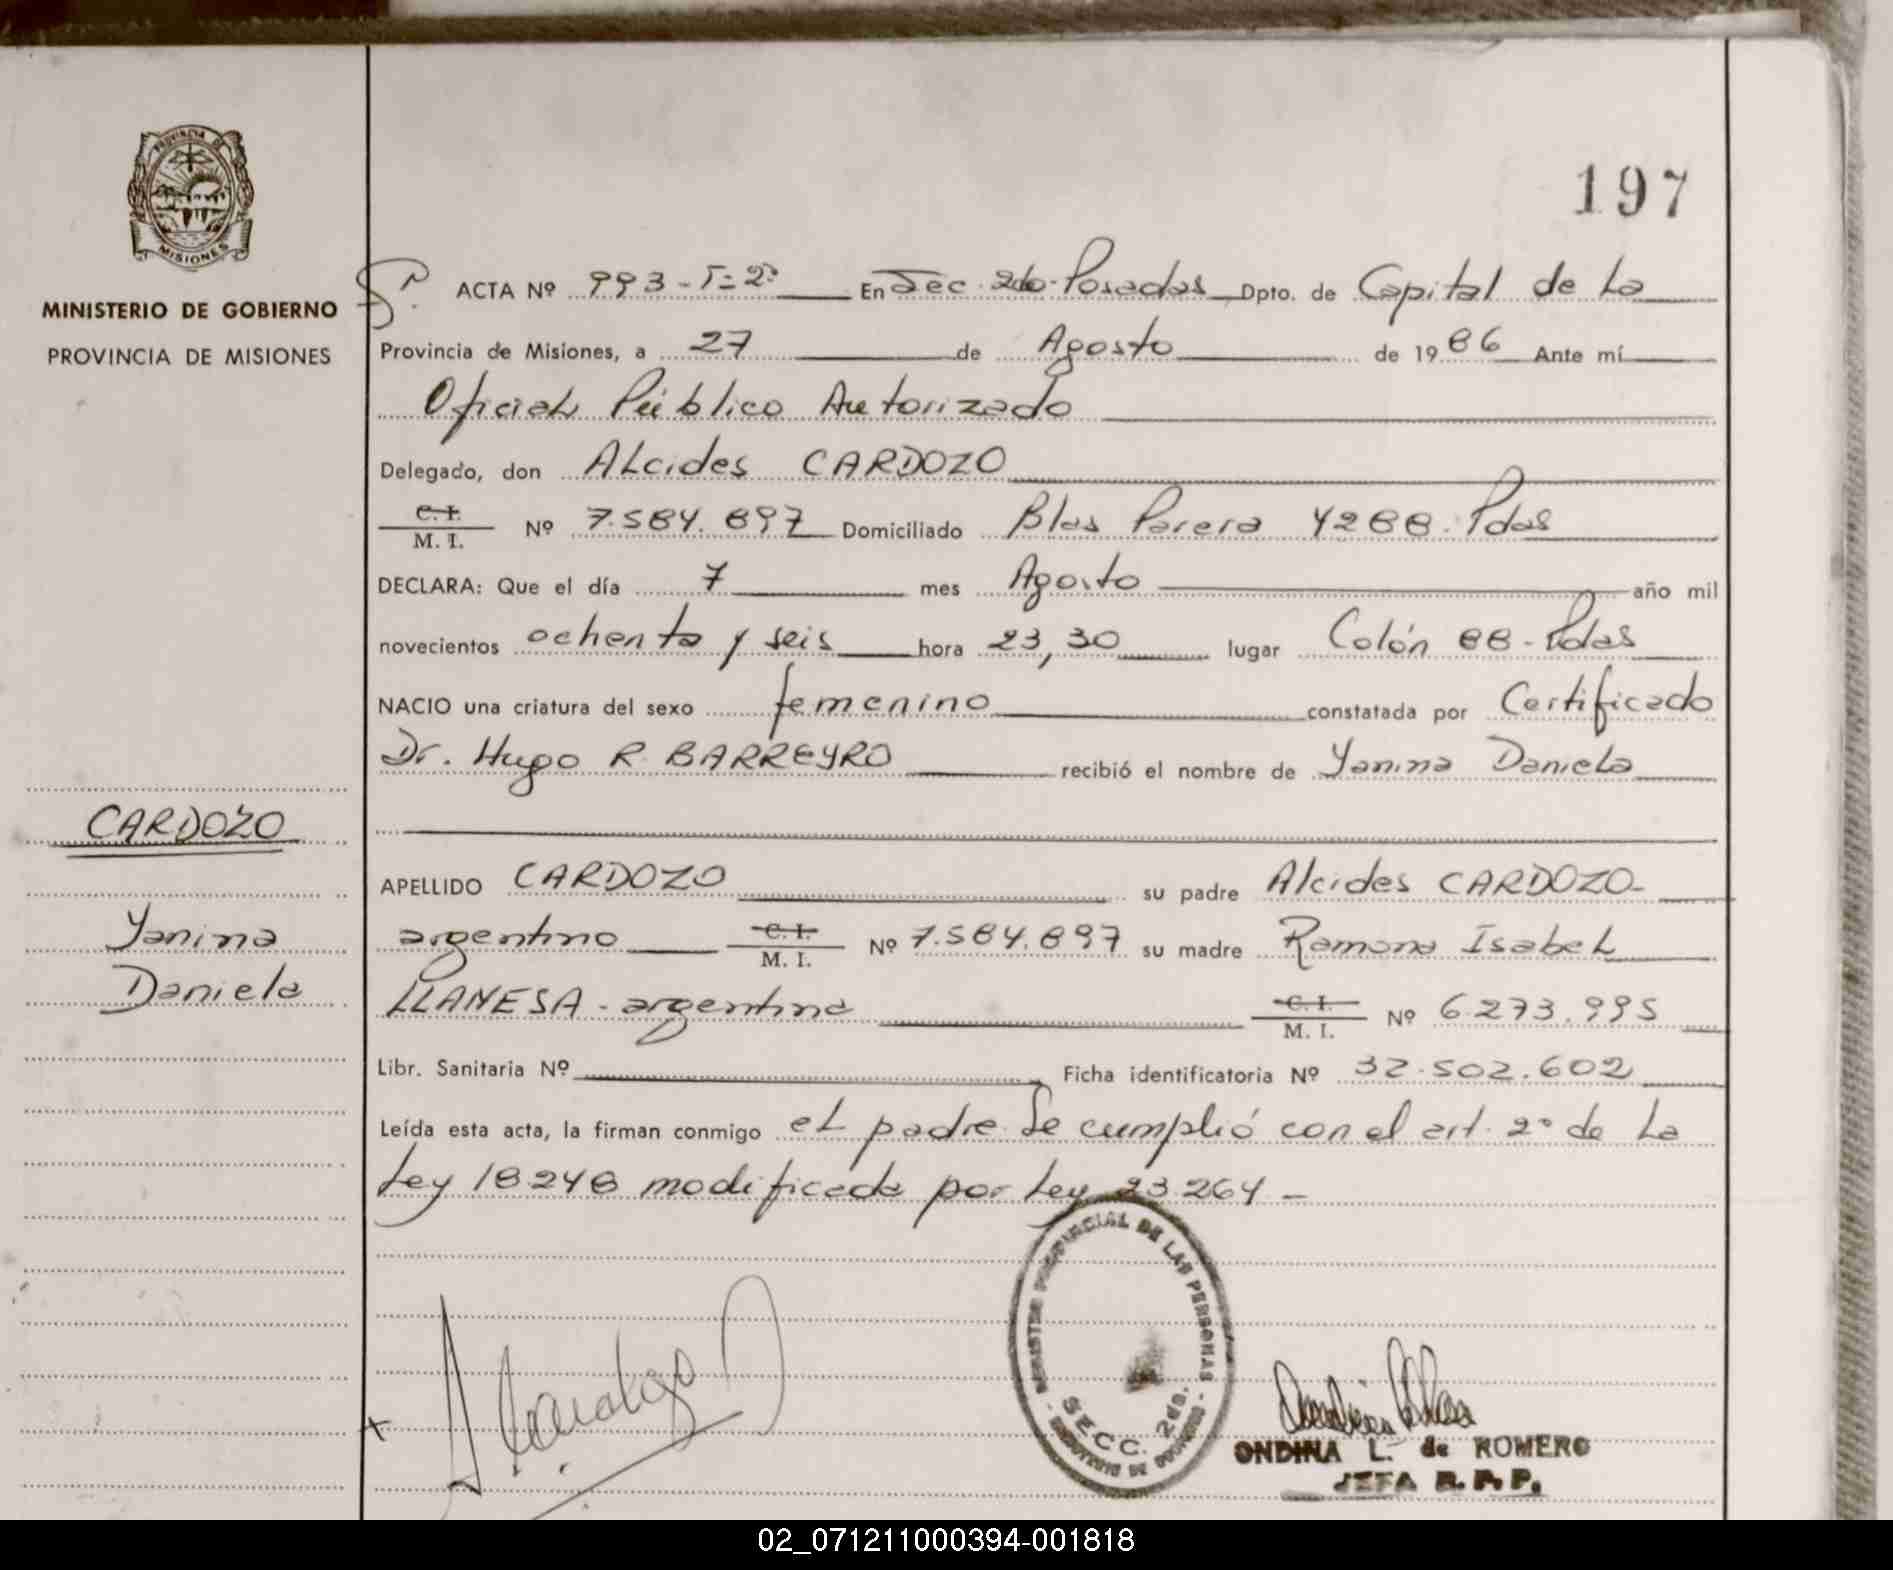 197
PROVINCIA DE
MISIONES
MINISTERIO DE GOBIERNO
PROVINCIA DE MISIONES
ACTA Nº 993-T=2º En Sec 2da-Posadas Dpto. de Capital de La
Provincia de Misiones, a 27 de Agosto de 1986 Ante mí
Oficial Público Autorizado
Delegado, don ALcides CARDOZO
C. I.
M. I. Nº 7.584.897 Domiciliado Blas Parera 4288-Pdas
DECLARA: Que el día 7 mes Agosto año mil
novecientos ochenta y seis hora 23,30 lugar Colón 88-Pdas
NACIO una criatura del sexo femenino constatada por Certificado
Dr. Hugo R BARREYRO recibió el nombre de Yanina Daniela
CARDOZO
Yanina
Daniela
APELLIDO CARDOZO su padre Alcides CARDOZO-
argentino C. I.
M. I. Nº 7.584.897 su madre Ramona Isabel
LLANESA-argentina C. I.
M. I. Nº 6.273.995
Libr. Sanitaria Nº Ficha identificatoria Nº 32.502.602
Leída esta acta, la firman conmigo eL padre. Se cumplió con el art. 2º de La
Ley 18248 modificada por Ley 23.264-
PROVINCIAL DE LAS PERSONAS
SECC. 2da.
ONDINA L. de ROMERO
JEFA R.P.P.
02_071211000394-001818